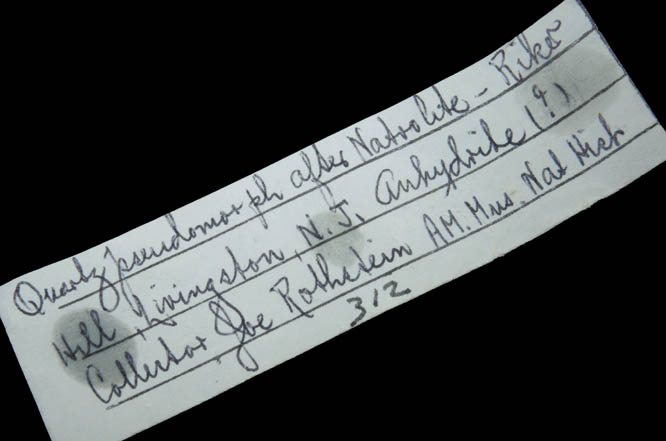 Quartz pseudomorph after Natrolite - Riker
Hill, Livingston, N.J. Anhydrite (?)
Collector Joe Rothstein AM. Mus. Nat Hist
312